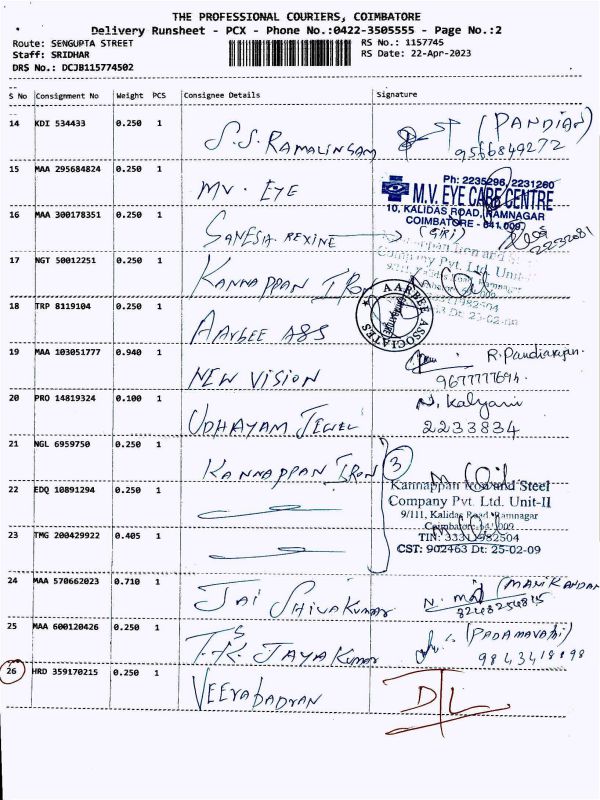 THE PROFESSIONAL COURIERS, COIMBATORE
Delivery Runsheet - PCX - Phone No.:0422-3505555 - Page No.:2
Route: SENGUPTA STREET RS No.: 1157745
Staff: SRIDHAR RS Date: 22-Apr-2023
DRS No.: DCJB115774502
S No Consignment No Weight PCS Consignee Details Signature
14 KDI 534433 0.250 1 S.S. RAMALINGAM (PANDIAN)
9566849272
15 MAA 295684824 0.250 1 MV. EYE
Ph: 2235296, 2231260
M.V. EYE CARE CENTRE
10, KALIDAS ROAD, RAMNAGAR
COIMBATORE - 641 009
16 MAA 300178351 0.250 1 GANESIA REXINE (GIRI)
2232081
17 NGT 50012251 0.250 1 KANNAPPAN IRON
Kannappan Iron and
Company Pvt. Ltd. Unit-
18 TRP 8119104 0.250 1 AARBEE A&S
AARBEE ASSOCIATES
19 MAA 103051777 0.940 1 NEW VISION R. Pandiarajan.
20 PRO 14819324 0.100 1 UDHAYAM JEWEL N. Kalyani
2233834
21 NGL 6959750 0.250 1 KANNAPPAN IRON 3
Kannappan Iron and Steel
Company Pvt. Ltd. Unit-II
9/111, Kalidas Road, Ramnagar
Coimbatore-641 009
TIN: 33311982504
CST: 902463 Dt: 25-02-09
22 EDQ 10891294 0.250 1
23 TMG 200429922 0.405 1
24 MAA 570662023 0.710 1 JAI SHIVAKUMAR (MANIKANDAN
25 MAA 600120426 0.250 1 T.S.K. JAYAKUMAR (PADAMAVATHI)
26 HRD 359170215 0.250 1 VEERABADRAN DTL